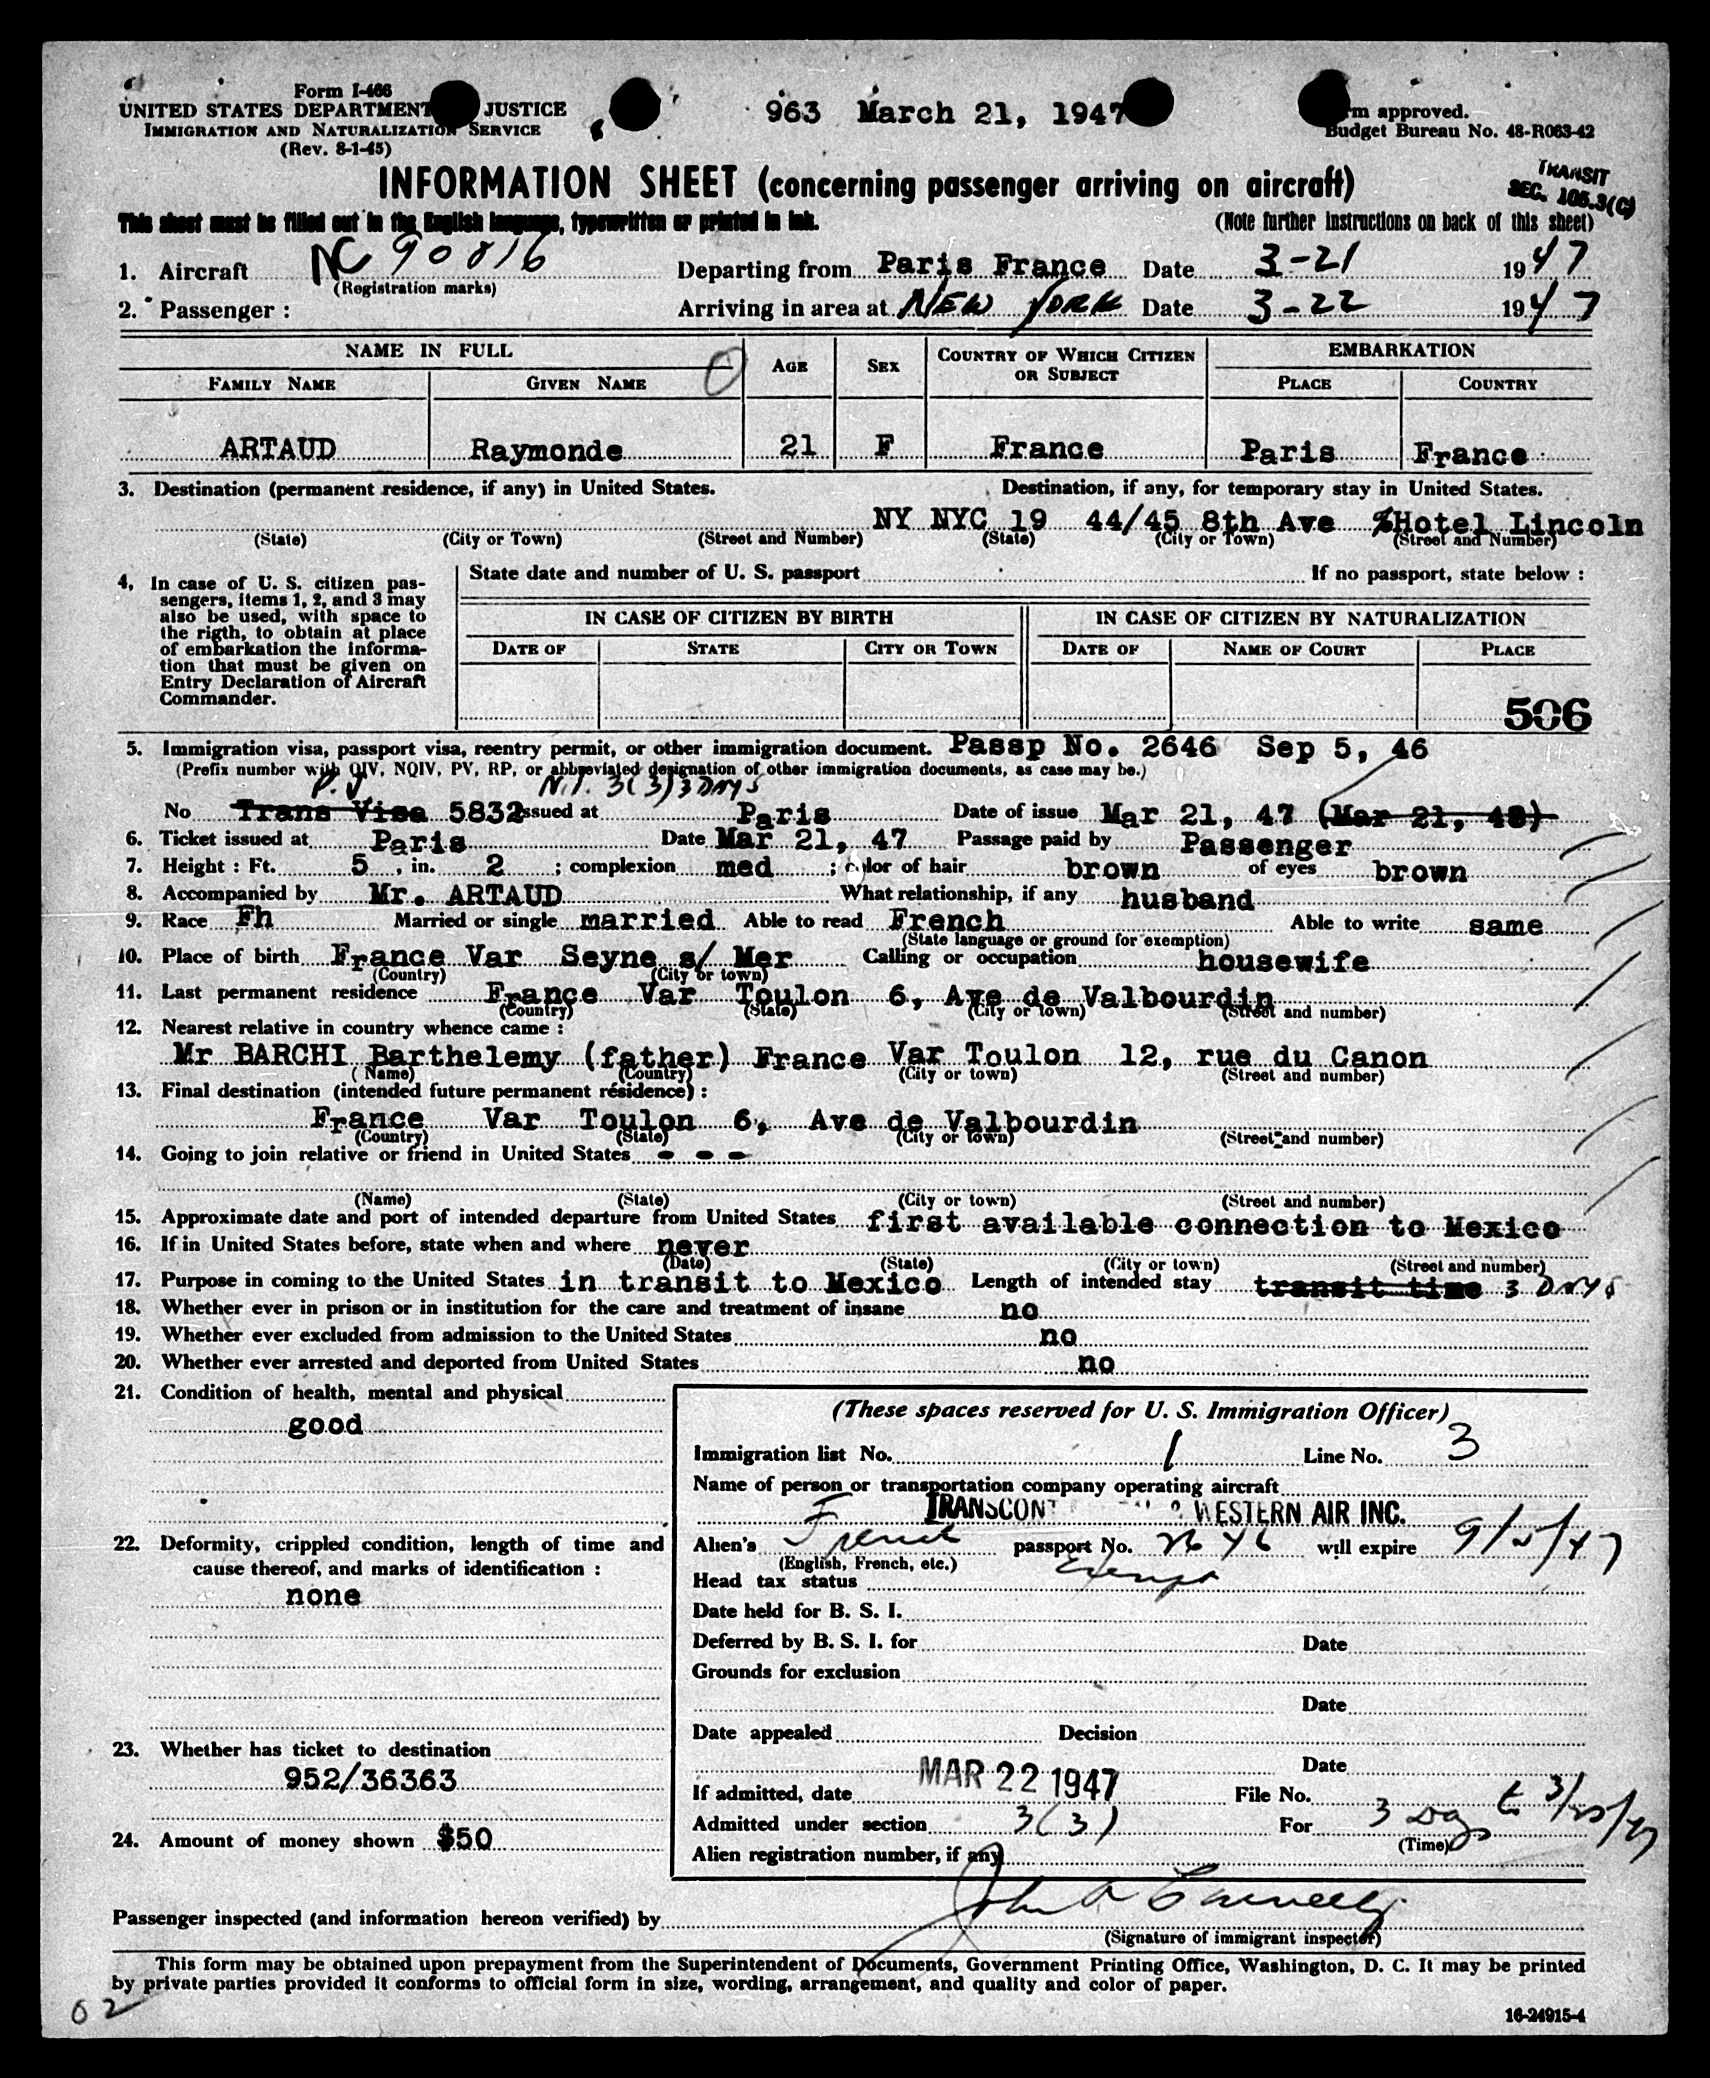 Form I-466
UNITED STATES DEPARTMENT JUSTICE
IMMIGRATION AND NATURALIZATION SERVICE
(Rev. 8-1-45)
963 March 21, 1947
approved.
Budget Bureau No. 48-R063-42
TRANSIT
SEC. 105.3(C)
INFORMATION SHEET (concerning passenger arriving on aircraft)
This sheet must be filled out in the English language, typewritten or printed in ink. (Note further instructions on back of this sheet)
1. Aircraft NC 90816 Departing from Paris France Date 3-21 1947
(Registration marks)
2. Passenger : Arriving in area at NEW YORK Date 3-22 1947
NAME IN FULL AGE SEX COUNTRY OF WHICH CITIZEN OR SUBJECT EMBARKATION
FAMILY NAME GIVEN NAME PLACE COUNTRY
ARTAUD Raymonde 21 F France Paris France
3. Destination (permanent residence, if any) in United States. Destination, if any, for temporary stay in United States.
NY NYC 19 44/45 8th Ave %Hotel Lincoln
(State) (City or Town) (Street and Number) (State) (City or Town) (Street and Number)
4. In case of U. S. citizen pas-
sengers, items 1, 2, and 3 may
also be used, with space to
the rigth, to obtain at place
of embarkation the informa-
tion that must be given on
Entry Declaration of Aircraft
Commander.
State date and number of U. S. passport If no passport, state below :
IN CASE OF CITIZEN BY BIRTH IN CASE OF CITIZEN BY NATURALIZATION
DATE OF STATE CITY OR TOWN DATE OF NAME OF COURT PLACE
506
5. Immigration visa, passport visa, reentry permit, or other immigration document. Passp No. 2646 Sep 5, 46
(Prefix number with QIV, NQIV, PV, RP, or abbreviated designation of other immigration documents, as case may be.)
P.V N.I. 3(3) 3 DAYS
No Trans Visa 5832 issued at Paris Date of issue Mar 21, 47 (Mar 21, 48)
6. Ticket issued at Paris Date Mar 21, 47 Passage paid by Passenger
7. Height : Ft. 5 , in. 2 ; complexion med ; color of hair brown of eyes brown
8. Accompanied by Mr. ARTAUD What relationship, if any husband
9. Race Fh Married or single married Able to read French Able to write same
(State language or ground for exemption)
10. Place of birth France Var Seyne s/ Mer Calling or occupation housewife
(Country) (City or town)
11. Last permanent residence France Var Toulon 6, Ave de Valbourdin
(Country) (State) (City or town) (Street and number)
12. Nearest relative in country whence came :
Mr BARCHI Barthelemy (father) France Var Toulon 12, rue du Canon
(Name) (Country) (City or town) (Street and number)
13. Final destination (intended future permanent résidence) :
France Var Toulon 6, Ave de Valbourdin
(Country) (State) (City or town) (Street and number)
14. Going to join relative or friend in United States - - -
(Name) (State) (City or town) (Street and number)
15. Approximate date and port of intended departure from United States first available connection to Mexico
16. If in United States before, state when and where never
(Date) (State) (City or town) (Street and number)
17. Purpose in coming to the United States in transit to Mexico Length of intended stay transit time 3 DAYS
18. Whether ever in prison or in institution for the care and treatment of insane no
19. Whether ever excluded from admission to the United States no
20. Whether ever arrested and deported from United States no
21. Condition of health, mental and physical
good
22. Deformity, crippled condition, length of time and
cause thereof, and marks of identification :
none
23. Whether has ticket to destination
952/36363
24. Amount of money shown $50
(These spaces reserved for U. S. Immigration Officer)
Immigration list No. 1 Line No. 3
Name of person or transportation company operating aircraft
TRANSCONT & WESTERN AIR INC.
Alien's French passport No. 2646 will expire 9/5/47
(English, French, etc.)
Head tax status Exempt
Date held for B. S. I.
Deferred by B. S. I. for Date
Grounds for exclusion
Date
Date appealed Decision
Date
If admitted, date MAR 22 1947 File No.
Admitted under section 3(3) For 3 Days to 3/25/47
(Time)
Alien registration number, if any
Passenger inspected (and information hereon verified) by John A
(Signature of immigrant inspector)
This form may be obtained upon prepayment from the Superintendent of Documents, Government Printing Office, Washington, D. C. It may be printed
by private parties provided it conforms to official form in size, wording, arrangement, and quality and color of paper.
02
16-24915-4